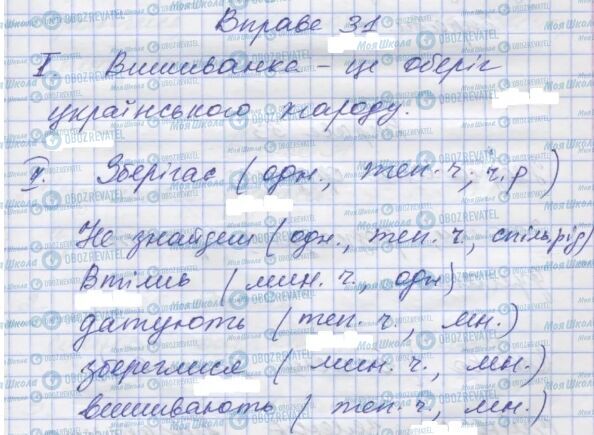 Вправа 31
І. Вишиванка – це оберіг
українського народу.
ІІ. Зберігає (одн., теп. ч., ч. р)
Не знайдеш (одн., теп. ч., спіль. рід)
Втілив (мин. ч., одн)
датують (теп. ч., мн.)
збереглися (мин. ч., мн.)
вишивають (теп. ч, мн.)